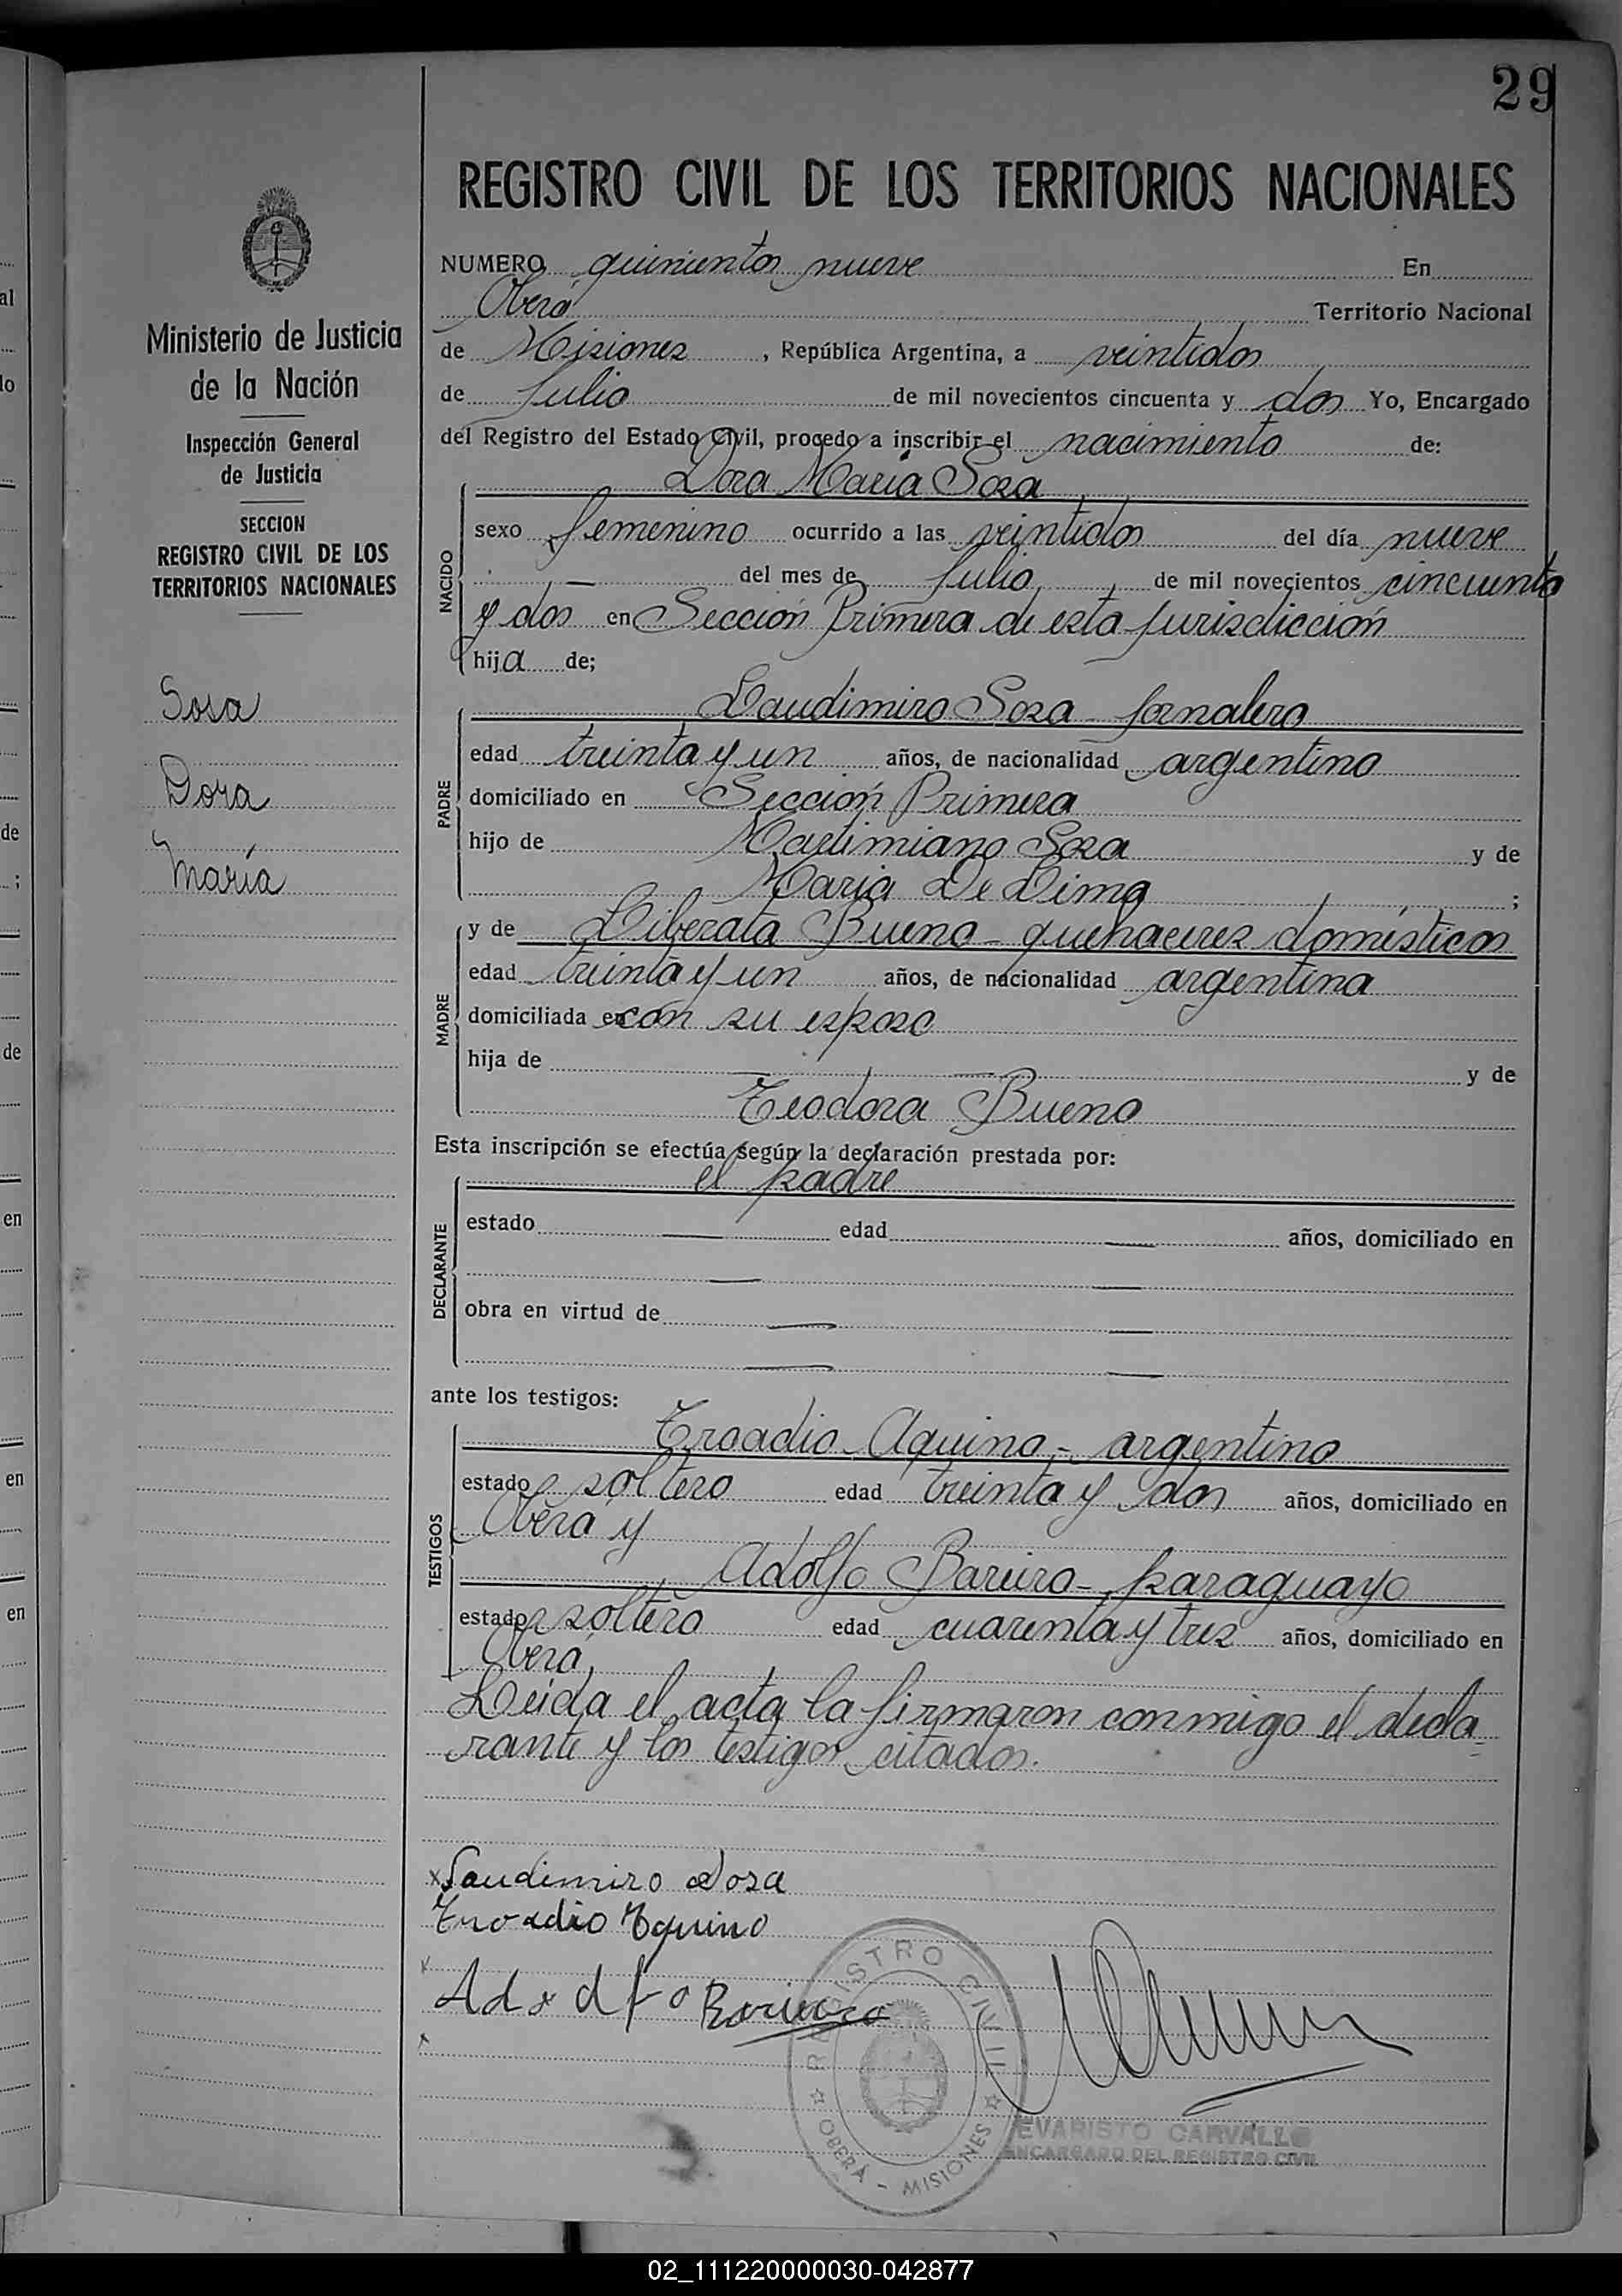 29
REGISTRO CIVIL DE LOS TERRITORIOS NACIONALES
Ministerio de Justicia
de la Nación
Inspección General
de Justicia
SECCION
REGISTRO CIVIL DE LOS
TERRITORIOS NACIONALES
Sosa
Dora
María
NUMERO quinientos nueve En
Oberá Territorio Nacional
de Misiones, República Argentina, a veintidos
de Julio de mil novecientos cincuenta y dos Yo, Encargado
del Registro del Estado Civil, procedo a inscribir el nacimiento de:
Dora María Sosa
NACIDO
sexo femenino ocurrido a las veintidos del día nueve
— del mes de Julio de mil novecientos cincuenta
y dos en Sección Primera de esta jurisdicción
hija de;
Laudimiro Sosa - jornalero
PADRE
edad treinta y un años, de nacionalidad argentino
domiciliado en Sección Primera
hijo de Maximiano Sosa y de
Maria De Lima ;
MADRE
y de Liberata Bueno - quehaceres domésticos
edad treinta y un años, de nacionalidad argentina
domiciliada en con su esposo
hija de — — y de
Teodora Bueno
Esta inscripción se efectúa según la declaración prestada por:
el padre
DECLARANTE
estado — edad — años, domiciliado en
— —
obra en virtud de — —
— —
ante los testigos:
TESTIGOS
Troadio Aquino - argentino
estado soltero edad treinta y dos años, domiciliado en
Oberá y
Adolfo Bareiro - paraguayo
estado soltero edad cuarenta y tres años, domiciliado en
Oberá
Leida el acta la firmaron conmigo el decla
rante y los testigos citados.
x Laudimiro Sosa
Troadio Aquino
x
Adolfo Bareiro
x
REGISTRO CIVIL
OBERÁ - MISIONES
EVARISTO CARVALLO
ENCARGADO DEL REGISTRO CIVIL
02_111220000030-042877